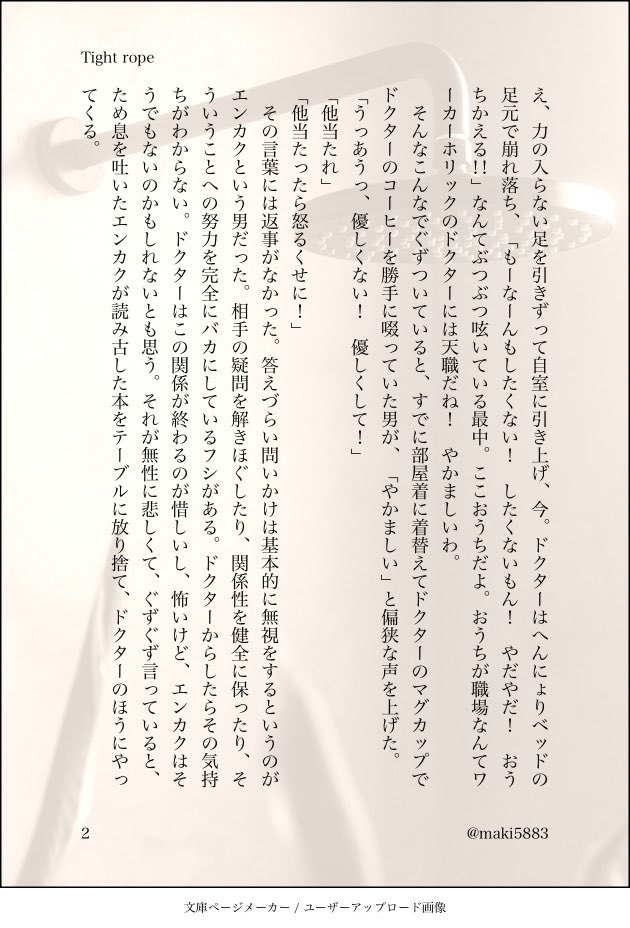 Tight rope
え、力の入らない足を引きずって自室に引き上げ、今。ドクターはへんにょりベッドの
足元で崩れ落ち、「もーなーんもしたくない！　したくないもん！　やだやだ！　おう
ちかえる!!」なんてぶつぶつ呟いている最中。ここおうちだよ。おうちが職場なんてワ
ーカーホリックのドクターには天職だね！　やかましいわ。
　そんなこんなでぐずついていると、すでに部屋着に着替えてドクターのマグカップで
ドクターのコーヒーを勝手に啜っていた男が、「やかましい」と偏狭な声を上げた。
「うっあうっ、優しくない！　優しくして！」
「他当たれ」
「他当たったら怒るくせに！」
　その言葉には返事がなかった。答えづらい問いかけは基本的に無視をするというのが
エンカクという男だった。相手の疑問を解きほぐしたり、関係性を健全に保ったり、そ
ういうことへの努力を完全にバカにしているフシがある。ドクターからしたらその気持
ちがわからない。ドクターはこの関係が終わるのが惜しいし、怖いけど、エンカクはそ
うでもないのかもしれないとも思う。それが無性に悲しくて、ぐずぐず言っていると、
ため息を吐いたエンカクが読み古した本をテーブルに放り捨て、ドクターのほうにやっ
てくる。
2
@maki5883
文庫ページメーカー / ユーザーアップロード画像